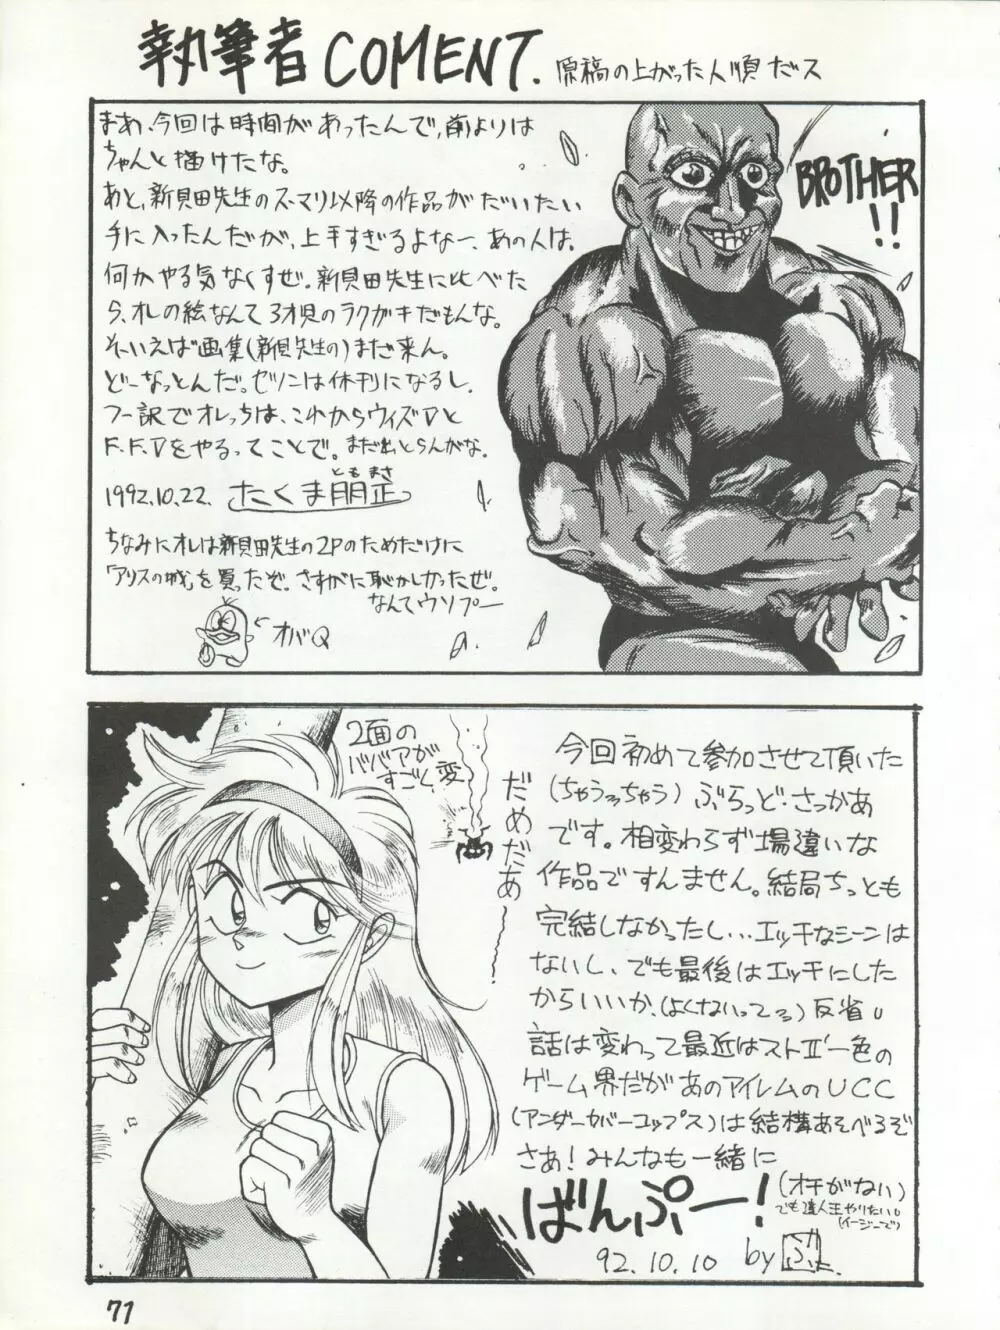 執筆者 COMENT. 原稿の上がった人順だス
まあ、今回は時間があったんで、前よりは
ちゃんと描けたな。
あと、新貝田先生のス・マリ以降の作品がだいたい
手に入ったんだが、上手すぎるよなー、あの人は。
何かやる気なくすぜ。新貝田先生に比べた
ら、オレの絵なんて3才児のラクガキだもんな。
そーいえば画集(新貝先生の)まだ来ん。
どーなっとんだ。ゼノンは休刊になるし。
つー訳でオレっちは、これからウィズVと
F.F.Vをやるってことで。まだ出とらんがな。
1992.10.22. たくま朋正
ともまさ
ちなみにオレは新貝田先生の2Pのためだけに
「アリスの城」を買ったぞ。さすがに恥かしかったぜ。
なんてウソプー
オバQ
BROTHER
!!
2面の
ババアが
すごく変
だめだあ〜
今回初めて参加させて頂いた
(ちゃうちゃう)ぶらっど・さっかあ
です。相変わらず場違いな
作品ですんません。結局ちっとも
完結しなかったし...エッチなシーンは
ないし、でも最後はエッチにした
からいいか、(よくないってる)反省
話は変わって最近はストⅡ'一色の
ゲーム界だがあのアイレムのUCC
(アンダーカバーコップス)は結構あそべるぞ
さあ!みんなも一緒に
ばんぷー!
(オチがない)
でも達人王やりたい。
(イージーで)
92.10.10 by
71